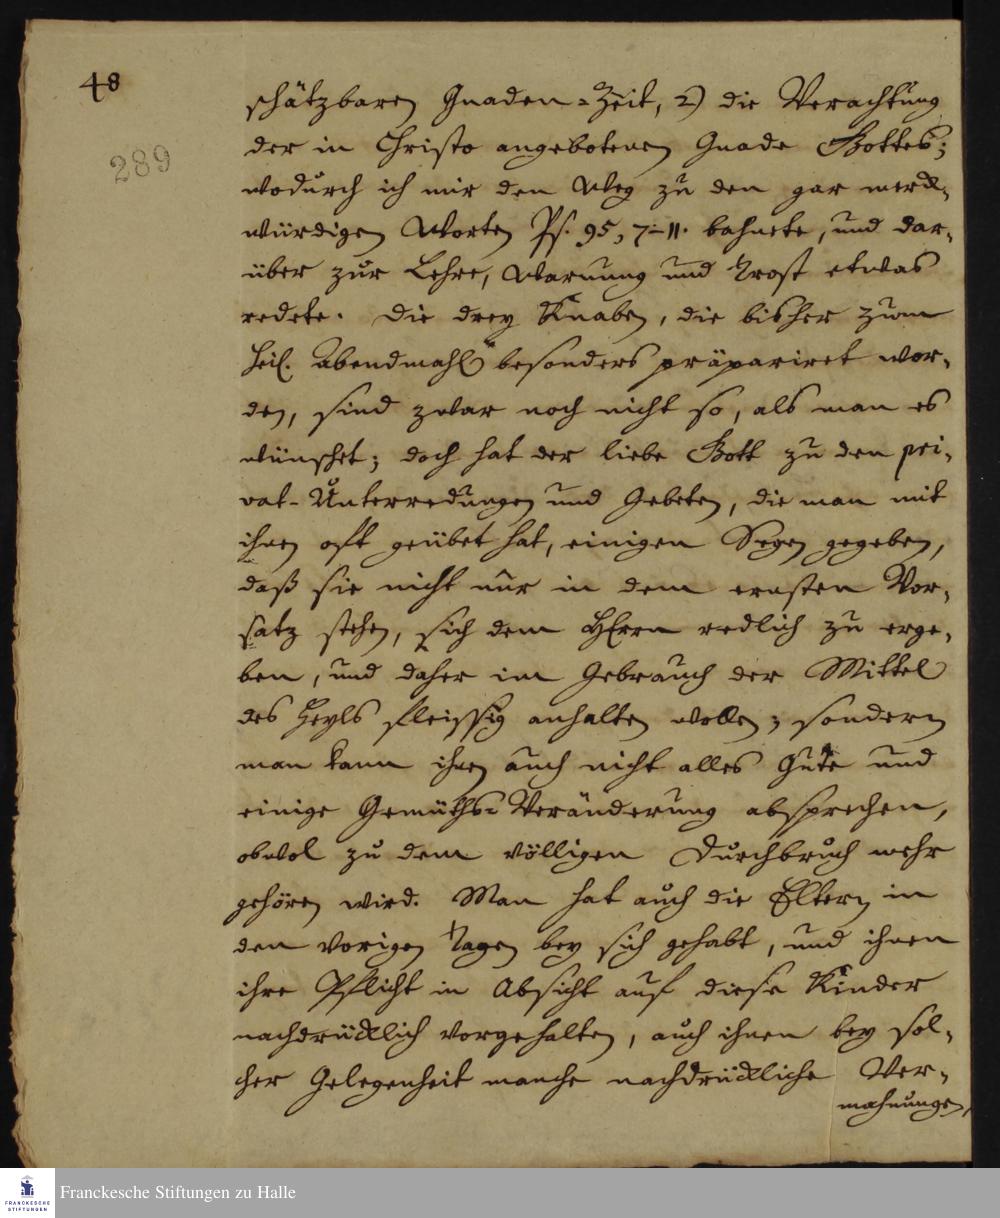 48
289
schätzbaren Gnaden-Zeit, 2) die Verachtung
der in Christo angebotenen Gnade Gottes;
wodurch ich mir den Weg zu den gar merck-
würdigen Worten Ps. 95, 7-11. bahnete, und dar-
über zur Lehre, Warnung und Trost etwas
redete. Die drey Knaben, die bisher zum
heil. Abendmahl besonders präpariret wor-
den, sind zwar noch nicht so, als man es
wünschet; doch hat der liebe Gott zu den pri-
vat-Unterredungen und Gebeten, die man mit
ihnen oft geübet hat, einigen Segen gegeben,
daß sie nicht nur in dem ernsten Vor-
satz stehen, sich dem HErrn redlich zu erge-
ben, und daher im Gebrauch der Mittel
des Heyls fleissig anhalten wollen; sondern
man kann ihnen auch nicht alles Gute und
einige Gemüths-Veränderung absprechen,
obwol zu dem völligen Durchbruch mehr
gehören wird. Man hat auch die Eltern in
den vorigen Tagen bey sich gehabt, und ihnen
ihre Pflicht in Absicht auf diese Kinder
nachdrücklich vorgehalten, auch ihnen bey sol-
cher Gelegenheit manche nachdrückliche Ver-
mahnungen,
FRANCKESCHE
STIFTUNGEN
Franckesche Stiftungen zu Halle